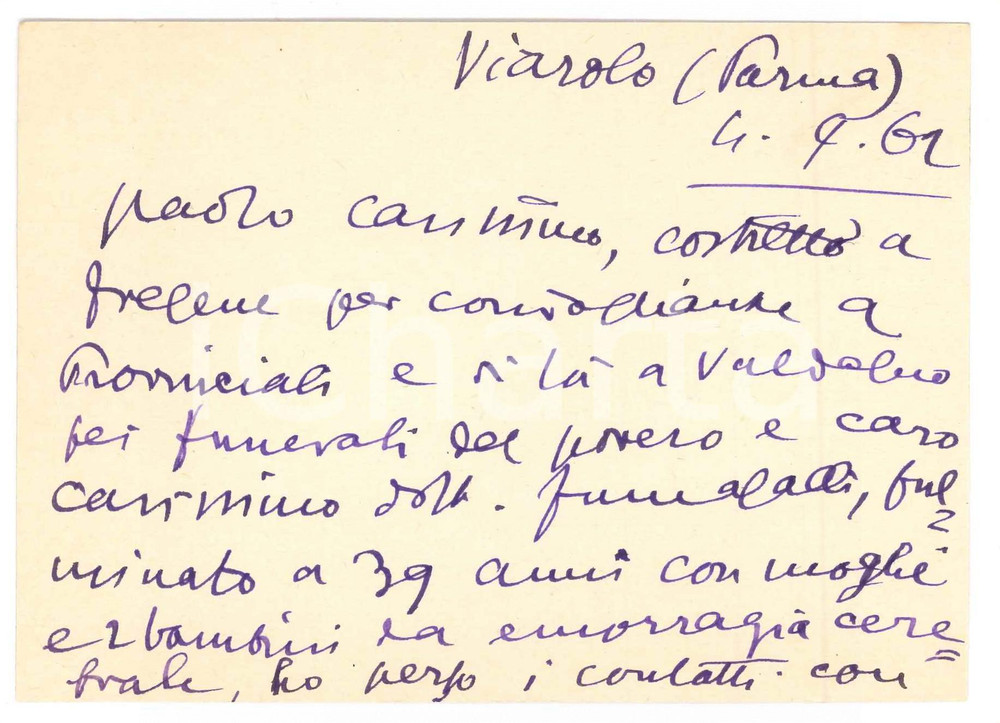 Viarolo (Parma)
4. 9. 62
paolo carissimo, costretto a
Fregene per convoglianze a
Provinciali e di là a Valdagno
pei funerali del povero e caro
carissimo dott. Fumagalli, ful=
minato a 39 anni con moglie
e 2 bambini da emorragia cere=
brale, ho perso i contatti con